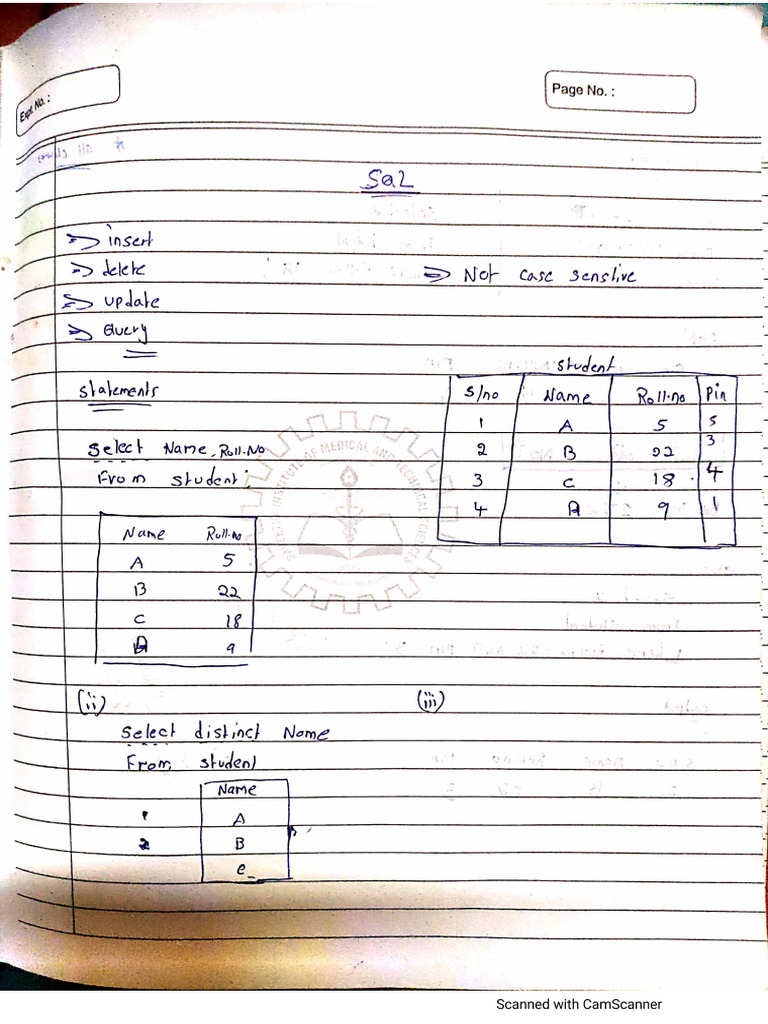 Expt No. :
Page No. :
SQL
⇒ insert
⇒ delete
⇒ Not case senstive
⇒ update
⇒ Query
Student
S/no Name Roll.no Pin
1 A 5 5
2 B 22 3
3 C 18 4
4 A 9 1
Statements
Select Name, Roll.No
From Student;
INSTITUTE OF MEDICAL AND TECHNICAL SCIENCES
Name Roll.no
A 5
B 22
C 18
A 9
(ii) (iii)
Select distinct Name
From Student
Name
1 A
2 B
C
Scanned with CamScanner